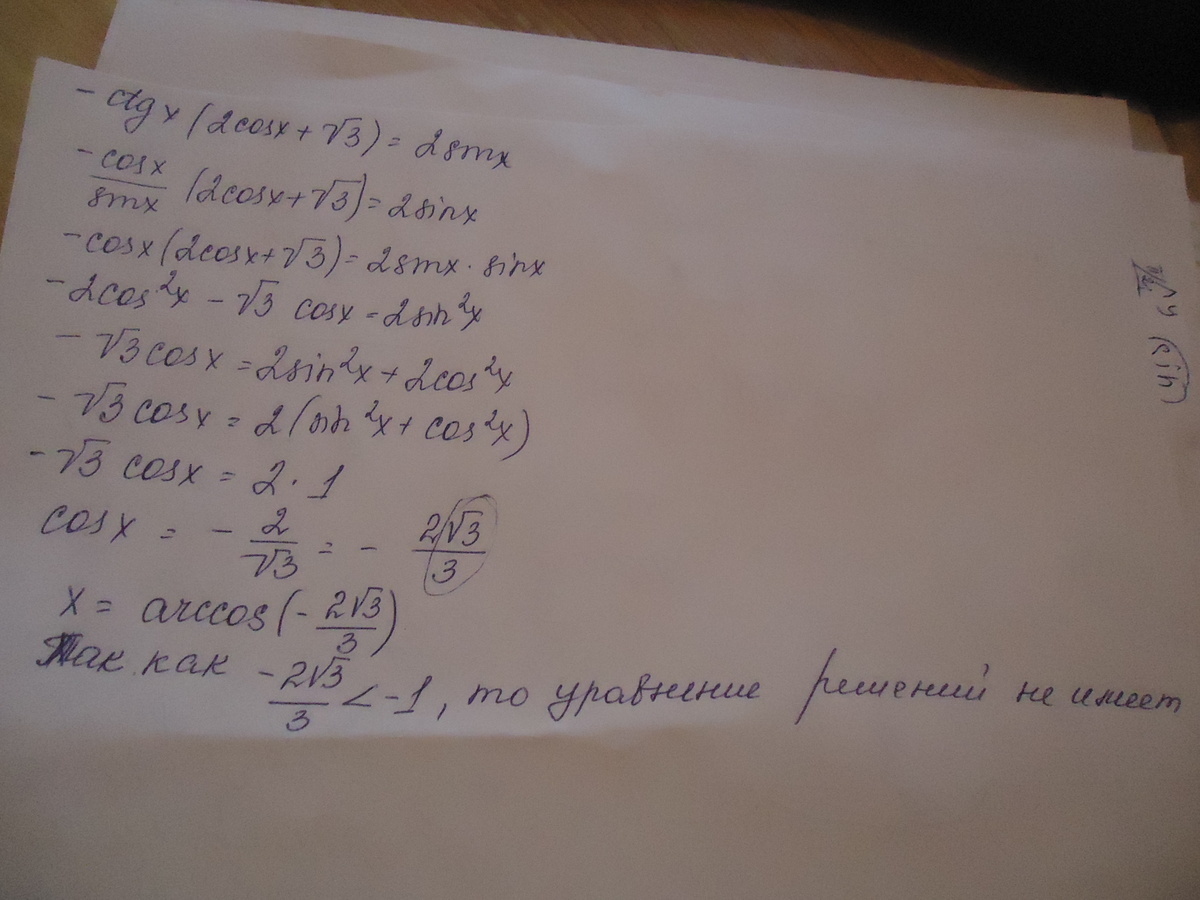 - ctg x (2cosx + √3) = 2sinx
- cosx/sinx (2cosx + √3) = 2sinx
- cosx (2cosx + √3) = 2sinx · sinx
- 2cos²x - √3 cosx = 2sin²x
- √3 cosx = 2sin²x + 2cos²x
- √3 cosx = 2(sin²x + cos²x)
- √3 cosx = 2 · 1
cosx = - 2/√3 = - 2√3/3
x = arccos(- 2√3/3)
Так как - 2√3/3 < -1, то уравнение решений не имеет